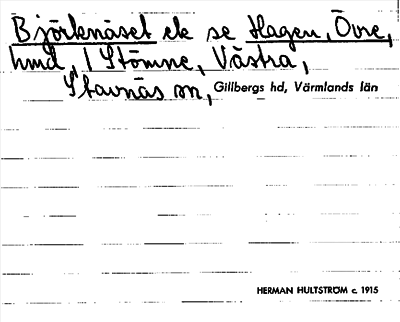 Björknäset ek se Hagen, Övre,
hmd, 1 Stömne, Västra,
Stavnäs sn, Gillbergs hd, Värmlands län
HERMAN HULTSTRÖM c. 1915